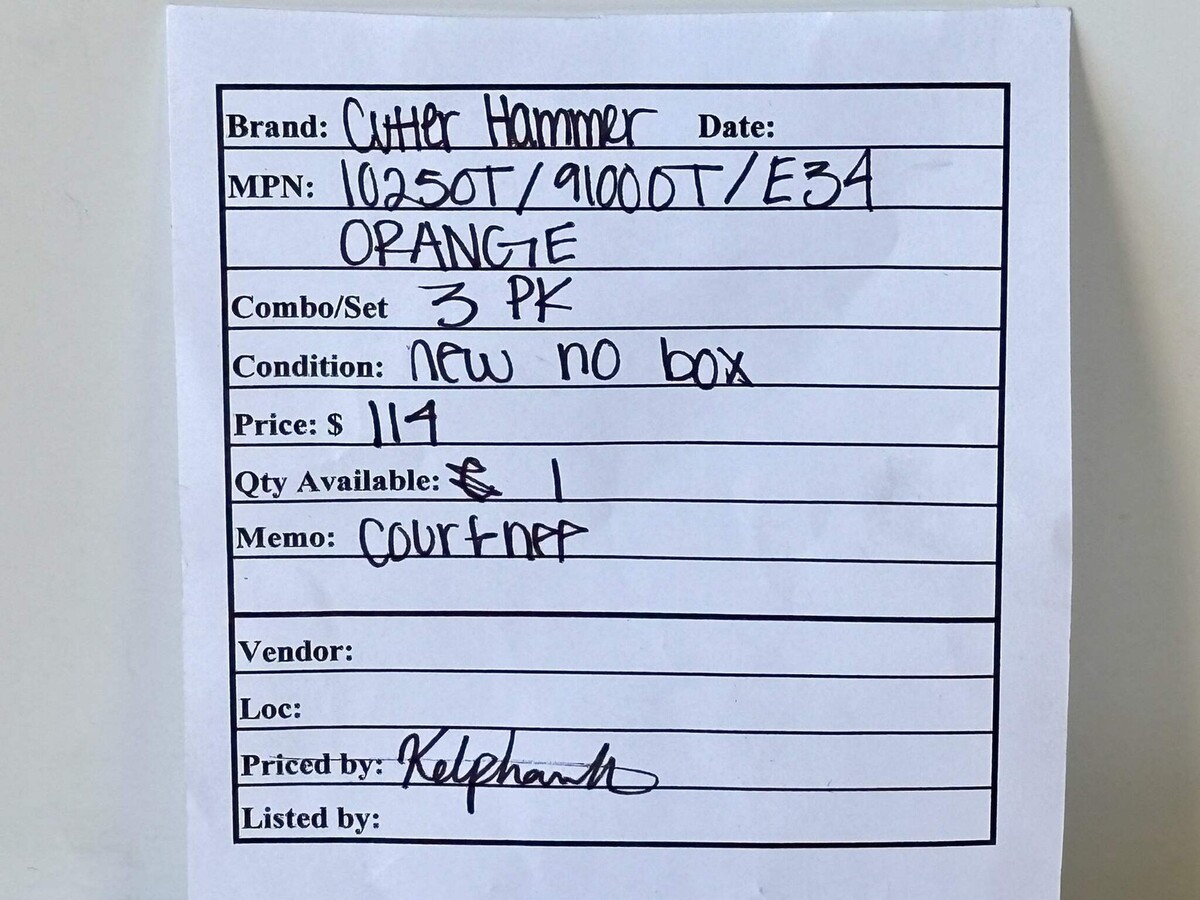 Brand: Cutter Hammer Date:
MPN: 10250T/91000T/E34
ORANGE
Combo/Set 3 PK
Condition: new no box
Price: $ 114
Qty Available: 1
Memo:
Vendor:
Loc:
Priced by:
Listed by: